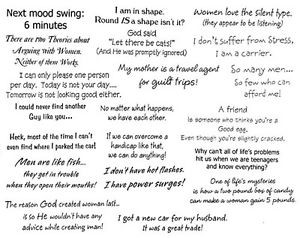 Next mood swing:
6 minutes
I am in shape.
Round IS a shape isn't it?
Women love the silent type.
(they appear to be listening)
There are two Theories about
Arguing with Women.
Neither of them Works.
God said,
"Let there be cats!"
(And He was promptly ignored)
I don't suffer from Stress,
I am a carrier.
I can only please one person
per day. Today is not your day....
Tomorrow is not looking good either.
My mother is a travel agent
for guilt trips!
So many men....
So few who can
afford me!
I could never find another
Guy like you....
No matter what happens,
we have each other.
A friend
is someone who thinks you're a
Good egg,
Even though you're slightly cracked.
Heck, most of the time I can't
even find where I parked the car!
If we can overcome a
handicap like that,
we can do anything!
Why can't all of life's problems
hit us when we are teenagers
and know everything?
Men are like fish...
they get in trouble
when they open their mouths!
I don't have hot flashes.
I have power surges!
One of life's mysteries
is how a two pound box of candy
can make a woman gain 5 pounds.
The reason God created woman last...
is so He wouldn't have any
advice while creating man!
I got a new car for my husband.
It was a great trade!